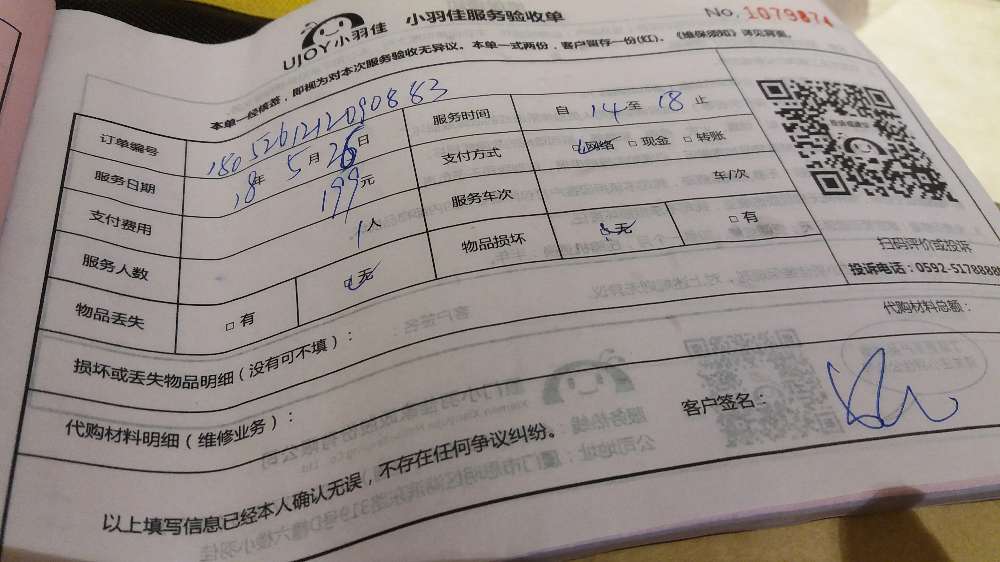 UJOY小羽佳 小羽佳服务验收单 No. 1079874
本单一经核签，即视为对本次服务验收无异议。本单一式两份，客户留存一份(红)。《维保须知》详见背面。
订单编号 1805261212090883 服务时间 自 14 至 18 止
服务日期 18年 5月 26日 支付方式 网络 □ 现金 □ 转账
支付费用 199元 服务车次 车/次
服务人数 1人 物品损坏 无 □ 有
物品丢失 □ 有 无
扫码评价或投诉
投诉电话：0592-5178888
损坏或丢失物品明细（没有可不填）：
代购材料总额：
代购材料明细（维修业务）：
客户签名：
以上填写信息已经本人确认无误，不存在任何争议纠纷。